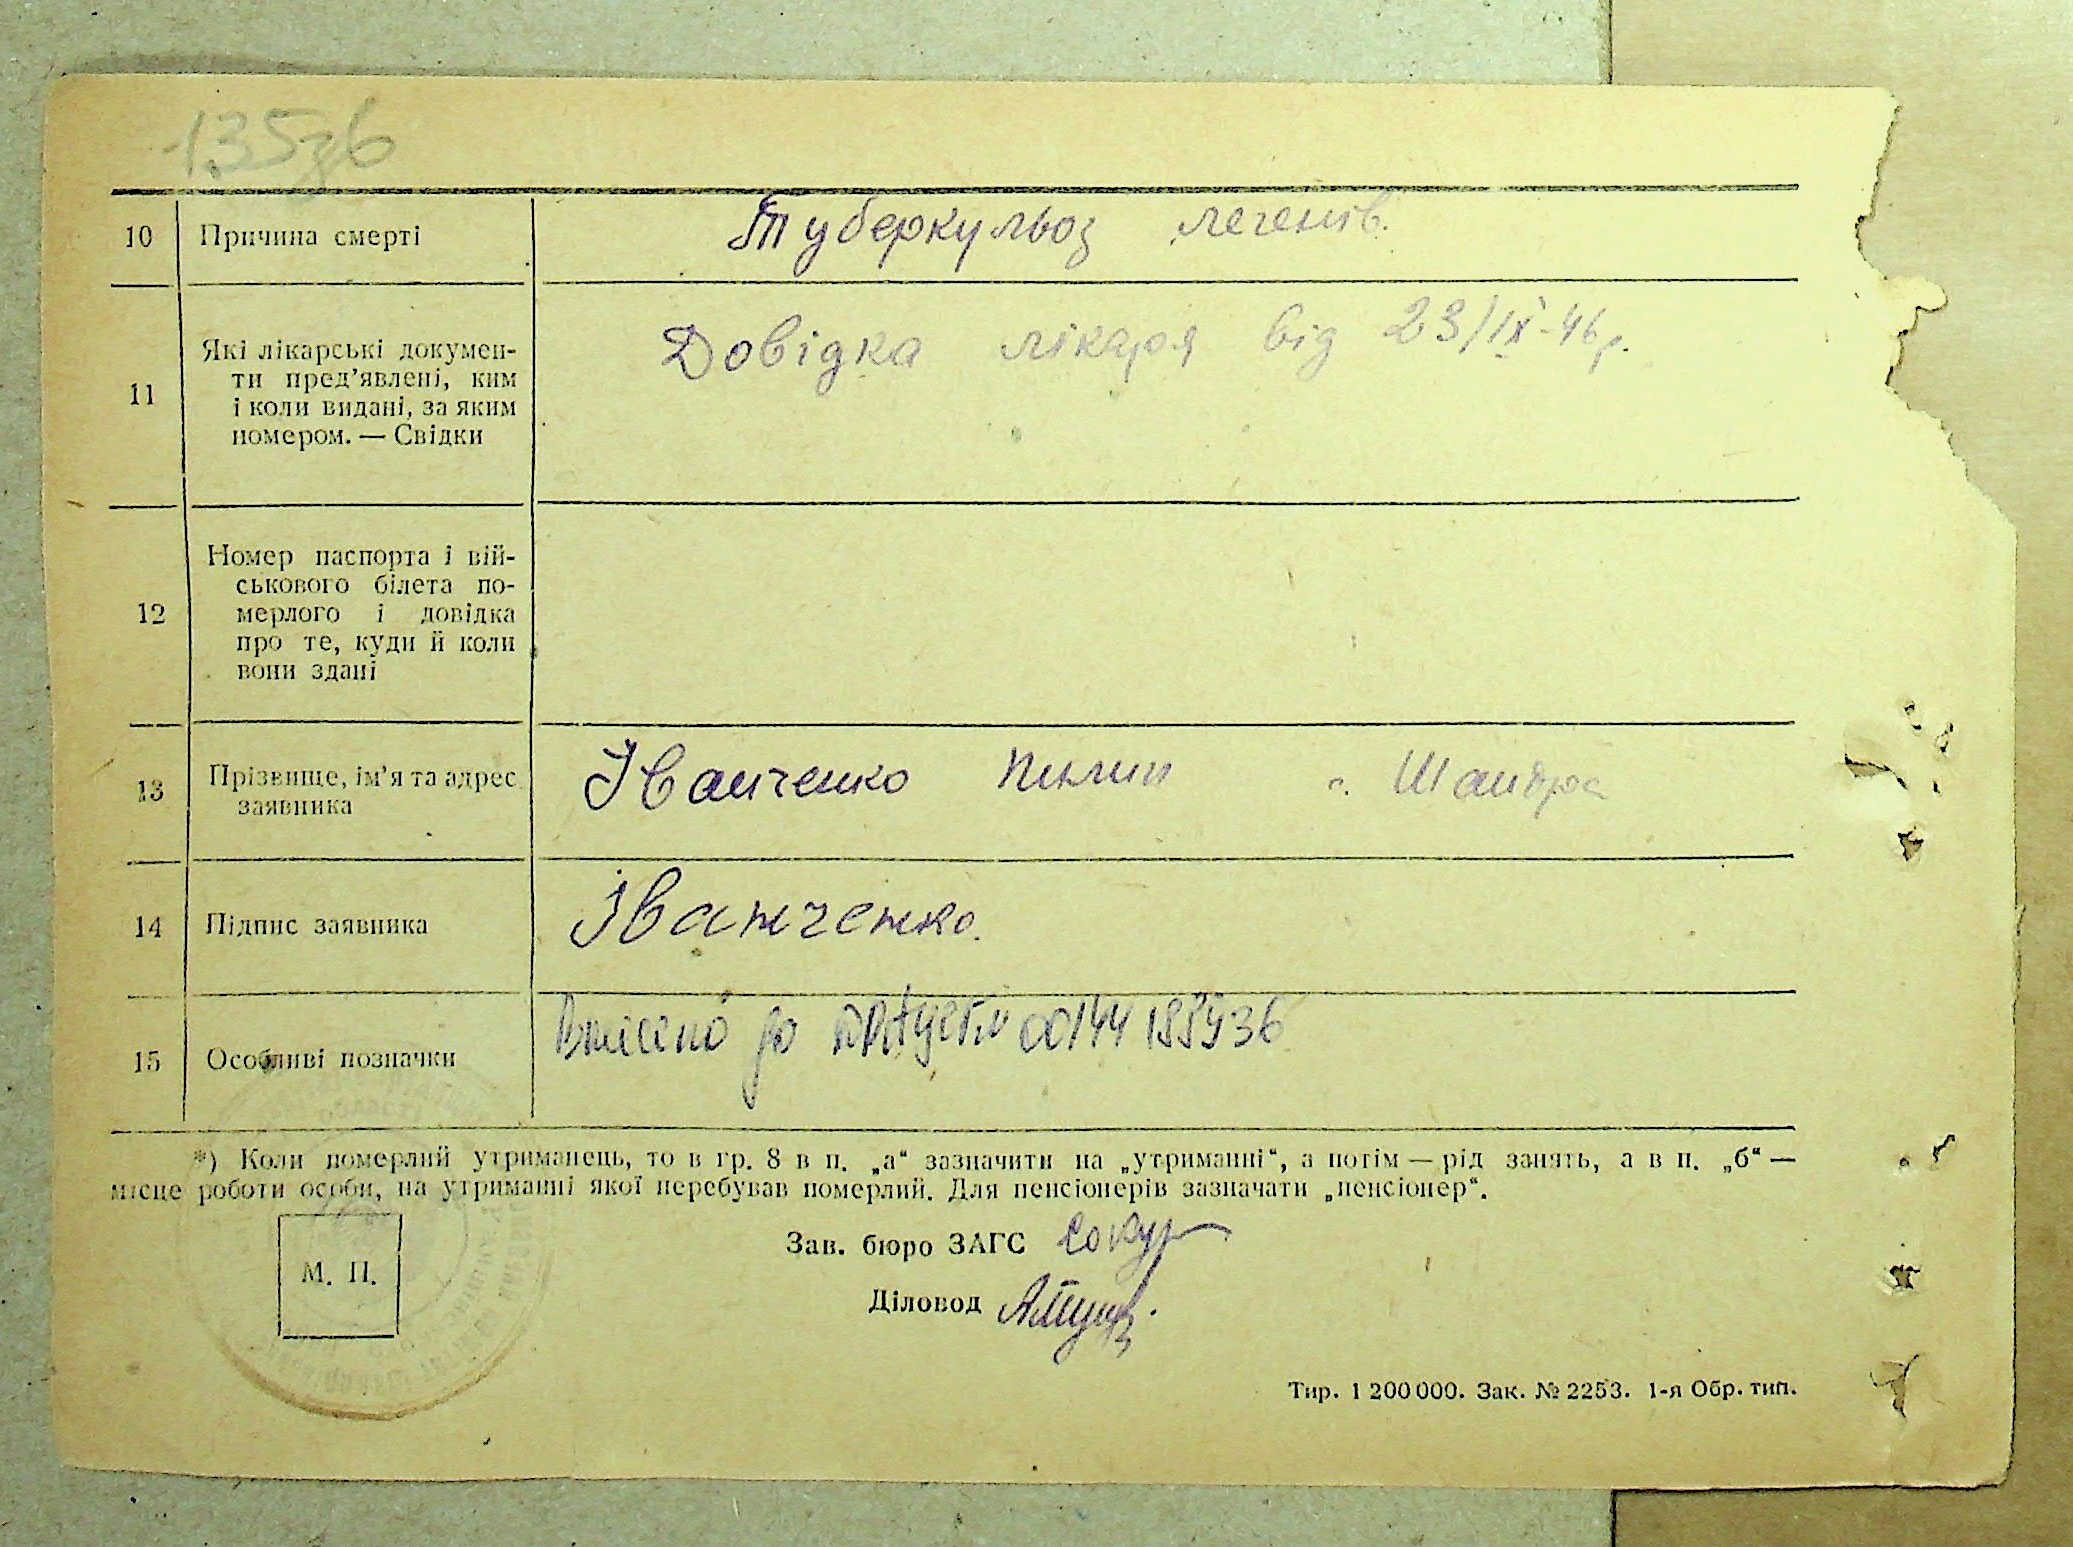 135зв
10 Причина смерті Туберкульоз легенів.
11 Які лікарські докумен-
ти пред’явлені, ким
і коли видані, за яким
номером. — Свідки
Довідка лікаря від 23/ІХ-46р.
12 Номер паспорта і вій-
ськового білета по-
мерлого і довідка
про те, куди й коли
вони здані
13 Прізвище, ім’я та адрес
заявника
Іванченко Пилип с. Шандра
14 Підпис заявника Іванченко.
15 Особливі позначки Внесено до 00144
*) Коли померлий утриманець, то в гр. 8 в п. „а“ зазначити на „утриманні“, а потім — рід занять, а в п. „б“ —
місце роботи особи, на утриманні якої перебував померлий. Для пенсіонерів зазначати „пенсіонер“.
М. П.
Зав. бюро ЗАГС
Діловод
Тир. 1 200 000. Зак. № 2253. 1-я Обр. тип.